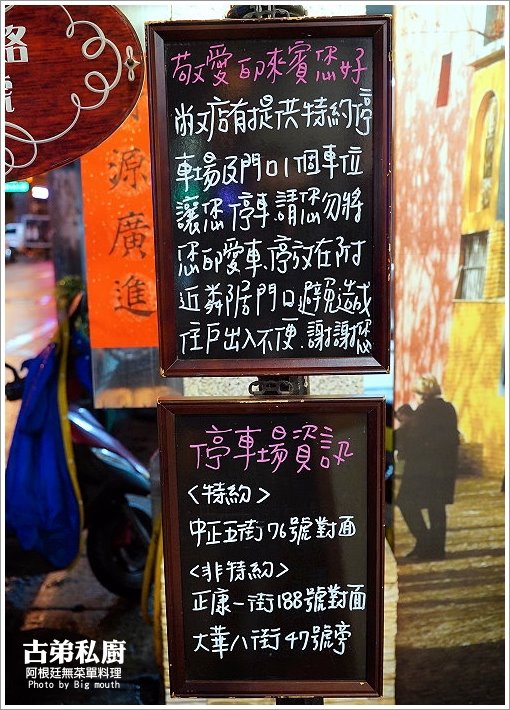 路
號
源廣進
敬愛的來賓您好
尚ㄡ店有提共特約停
車場及門口1個車位
讓您停車.請您勿將
您的愛車.停放在附
近鄰居門口.避免造成
住戶出入不便.謝謝您
停車場資訊
<特約>
中正五街76號對面
<非特約>
正康一街188號對面
大華八街47號旁
古弟私廚
阿根廷無菜單料理
Photo by Big mouth